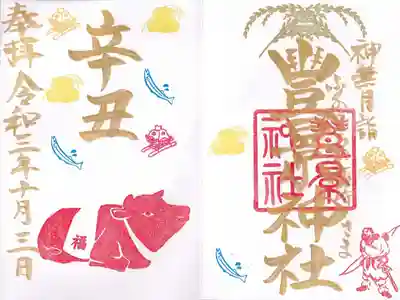 神無月詣
豊景神社
豊景神社
辛丑
福
奉拝 令和三年十月三日